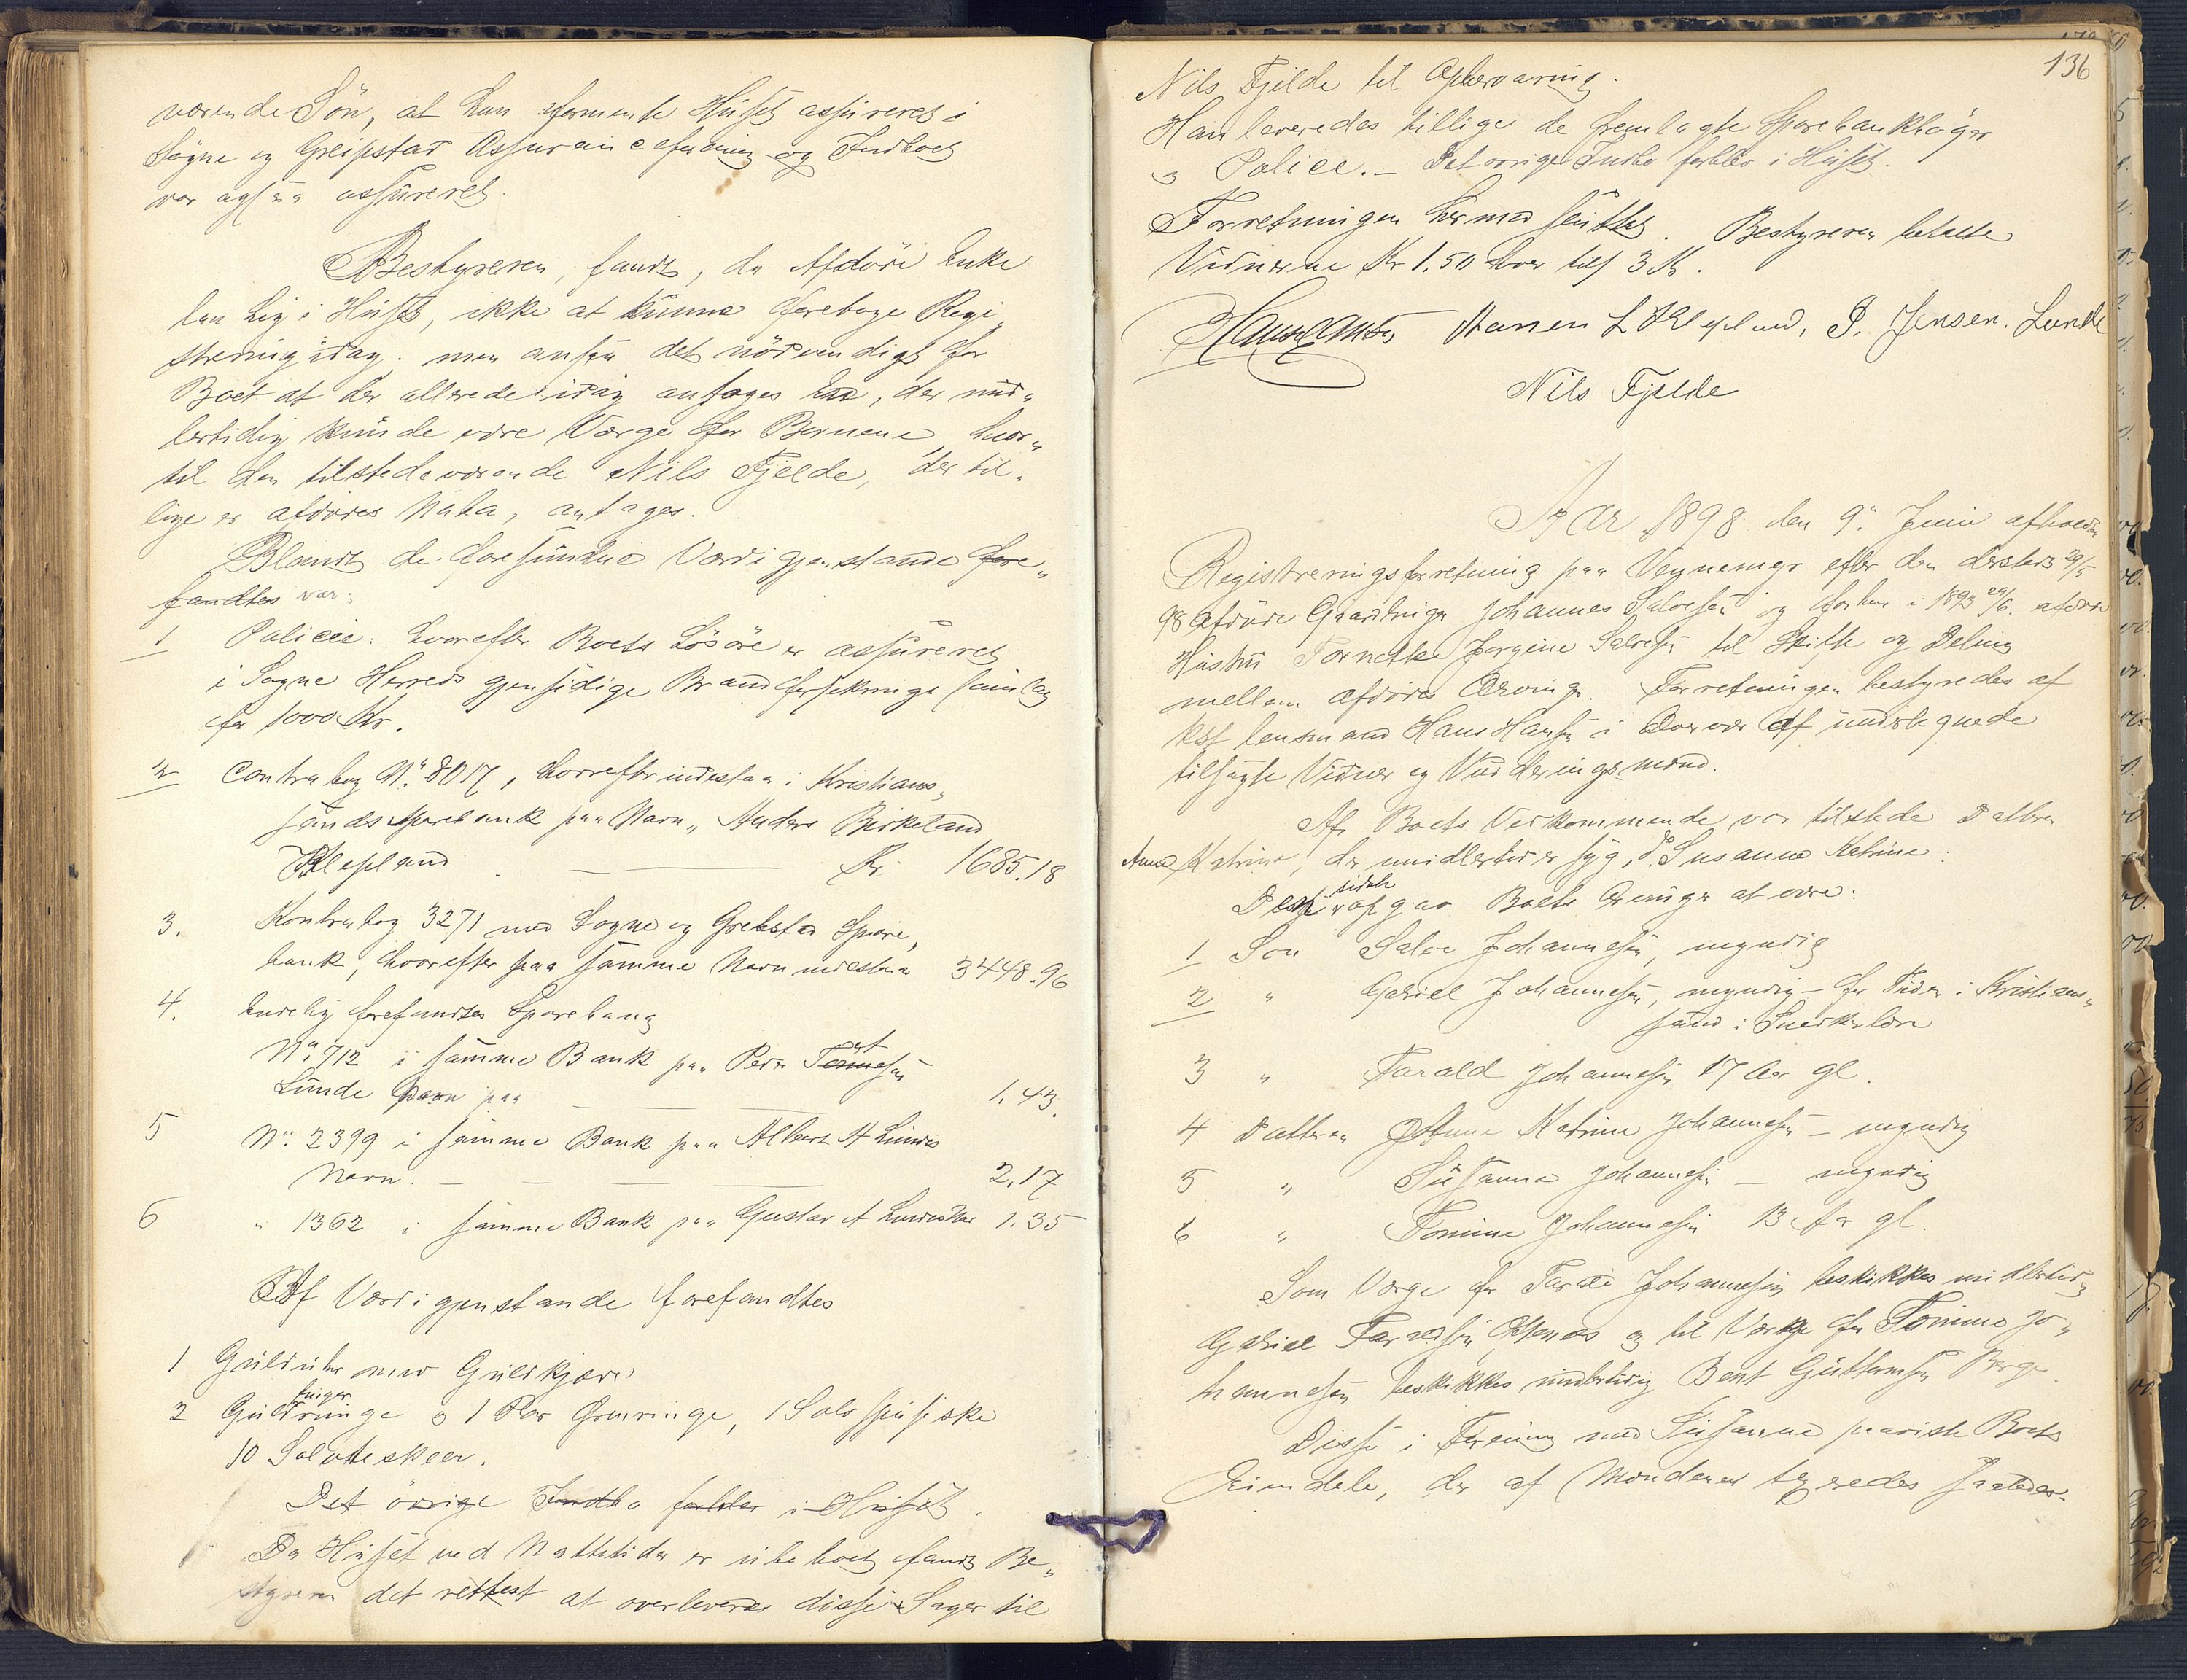 værende Søn, at han formente Huset assureret i
Søgne og Greipstad Assuranceforening og Indboet
var ogsaa assureret.
Bestyreren, fandt, da Afdøde Enke
laa Lig i Huset, ikke at kunne foretage Regi„
strering idag. men ansaa det nødvendigt for
Boet at der allerede idag antages En, der mid„
lertidig kunde være Værge for Børnene, hvor„
til den tilstedeværende Nils Fjelde, der til„
lige er afdødes Nabo, antages.
Blandt de forefundne Værdigjenstande fore„
fandtes var:
1 Police: hvorefter Boets Løsøre er assureret
i Søgne Herreds gjensidige Brandforsikrings samlag
for 1000 Kr.
2 Contrabog No. 8017, hvorefter indestaa i Kristians„
sands Sparebank paa Navn „Anders Birkeland
Klepland Kr. 1685.18
3. Kontrabog 3271 med Søgne og Grebstad Spare„
bank, hvorefter paa samme Navn indestaa 3448.96
4. Endelig forefandtes Sparebang
No. 712 i samme Bank paa Peder
Lunde Navn paa 1.43.
5 No. 2399 i samme Bank paa Albert A Lundes
Navn. 2.17
6 „ 1362 i samme Bank paa Gustav A Lundes Nav 1.35
Af Værdigjenstande forefandtes
1 Guldur med Guldkjæde
2 Guldfingerringe og 1 Par Ørenringe, 1 Sølv spiseske
10 Sølvtheskeer.
Det øvrige Indbo forbler i Huset.
Da Huset ved Nattetider er ubeboet fandt Be„
styreren det rettest at overlevere disse Sager til
136
Nils Fjelde til Opbevaring.
Han leveredes tillige de fremlagte Sparebankbøger
og Police. – Det øvrige Indbo forblev i Huset.
Forretningen hermed sluttet. Bestyreren betalte
Vidnerne Kr 1.50 hver tils 3 Kr.
Hans Hansen L Klepland, P. Jensen. Lunde
Nils Fjelde
Aar 1898 den 9. Juni afholdtes
Registreringsforretning paa Vegnemyr efter den dersteds 29/5
98 Afdøde Gaardbruger Johannes Salvesen og forhen i 1893 29/6. afdøde
Hustru Tornette Jorgine Salvesen til Skifte og Deling
mellem afdødes Arvinger. Forretningen bestyredes af
kst lensmand Hans Hansen i Overvær af undertegnede
tilsagte Vidner og Vurderingsmænd.
Af Boets Vedkommende var tilstede Datteren
Anna Katrine, der imidlertid er syg, do. Susanne Katrine.
sidste opgav Boets Arvinger at være:
1 Søn Salve Johannesen, myndig
2 „ Gabriel Johannesen, myndig – for Tiden i Kristians„
sand i Snedkerlære
3 „ Tarald Johannesen 17 Aar gl.
4 Datteren Anne Katrine Johannesen – myndig
5 „ Susanne Johannesen – myndig
6 „ Tomine Johannesen 13 Aar gl.
Som Værge for Tarald Johannesen beskikkes midlertidig
Gabriel Taraldsen og til Værge for Tomine Jo„
hannesen beskikkes midlertidig Bent Guttormsen Berge.
Disse i Forening med Susanne paaviste Boets
Eiendele, der af Mændene taxeredes saaledes.